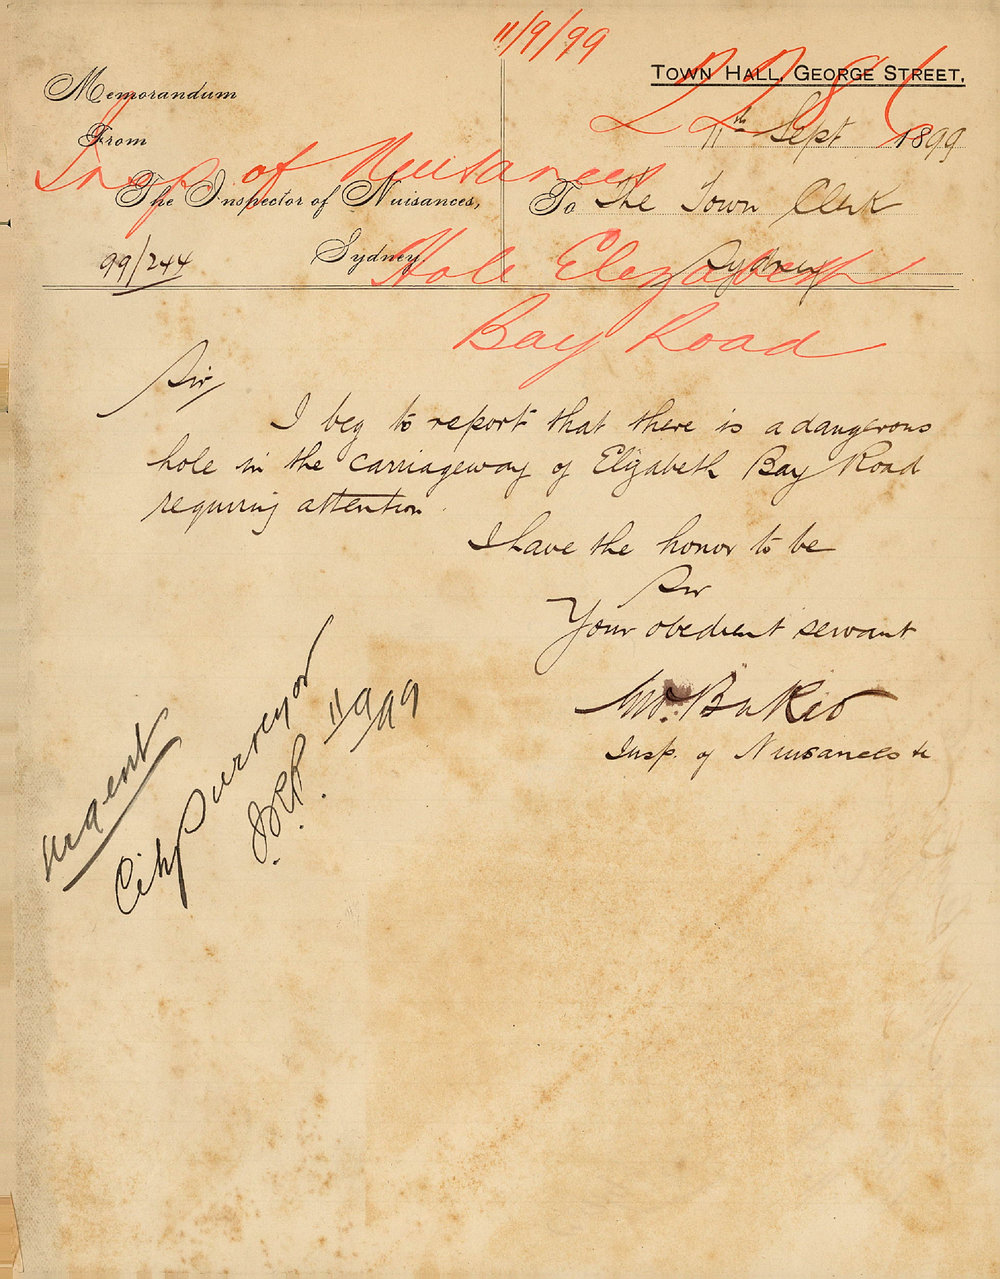 11/9/99
TOWN HALL, GEORGE STREET,
2786
Memorandum
From
11th Sept 1899
Insp of Nuisances
The Inspector of Nuisances,
To The Town Clerk
99/244
Sydney,
Sydney
Hole Elizabeth
Bay Road
Sir
I beg to report that there is a dangerous
hole in the carriageway of Elizabeth Bay Road
requiring attention.
I have the honor to be
Sir
Your obedient servant
Insp. of Nuisances &c
Urgent
City Surveyor
11/9/99